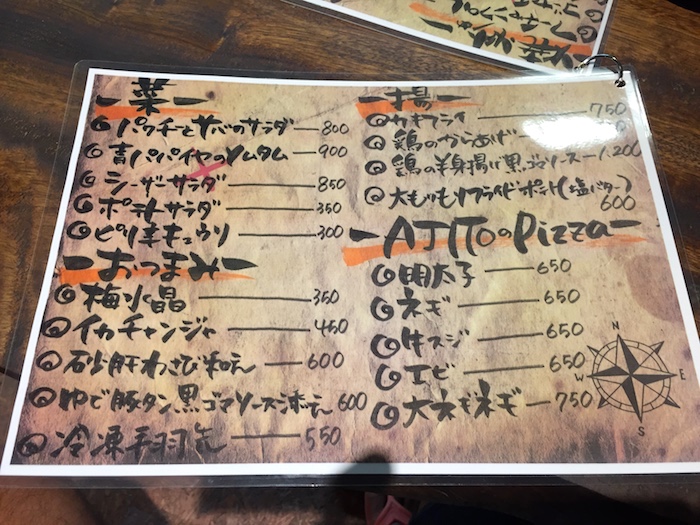 菜
パクチーとサバのサラダ 800
青パパイヤのソムタム 900
シーザーサラダ 850
ポテトサラダ 350
ピリ辛キュウリ 300
おつまみ
梅水晶 350
イカチャンジャ 450
砂肝わさび和え 600
ゆで豚タン黒ゴマソース添え 600
冷凍手羽先 550
揚
カキフライ 750
鶏のからあげ
鶏の半身揚げ黒ゴマソース 1,200
600
AJITOのPizza
明太子 650
ネギ 650
牛スジ 650
エビ 650
大ネギネギ 750
N
W E
S